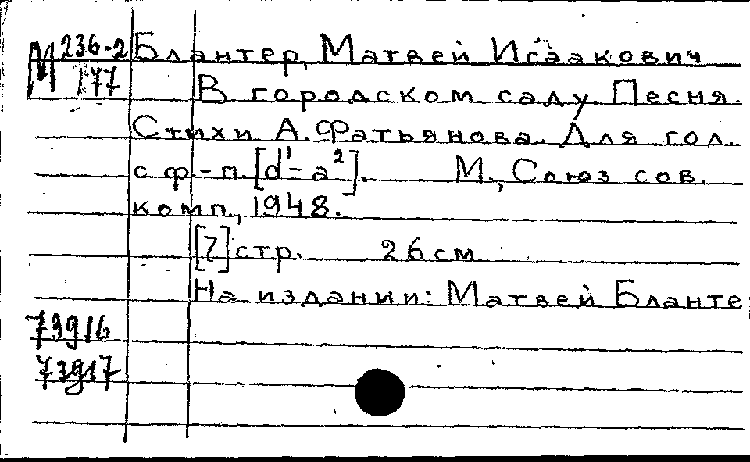 М 236-2 Блантер, Матвей Исаакович
177 В городском саду. Песня.
Стихи А. Фатьянова. Для гол.
с ф-п. [d¹-a²]. М., Союз сов.
комп., 1948.
[7] стр. 26 см
На издании: Матвей Бланте
73916
73917